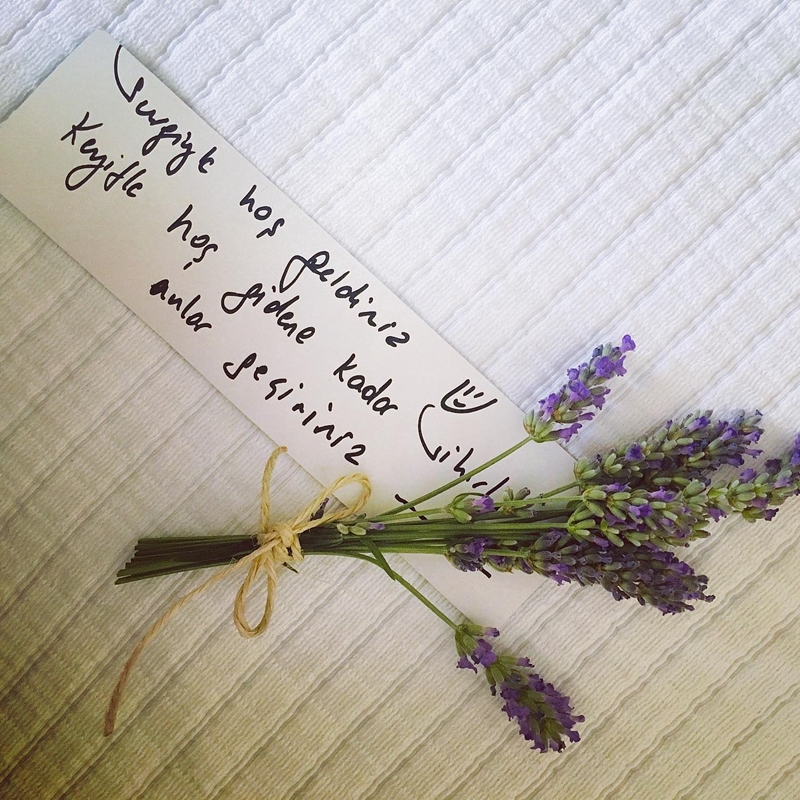 Sevgiyle hoş geldiniz
Keyifle hoş gidene kadar
anlar geçiriniz